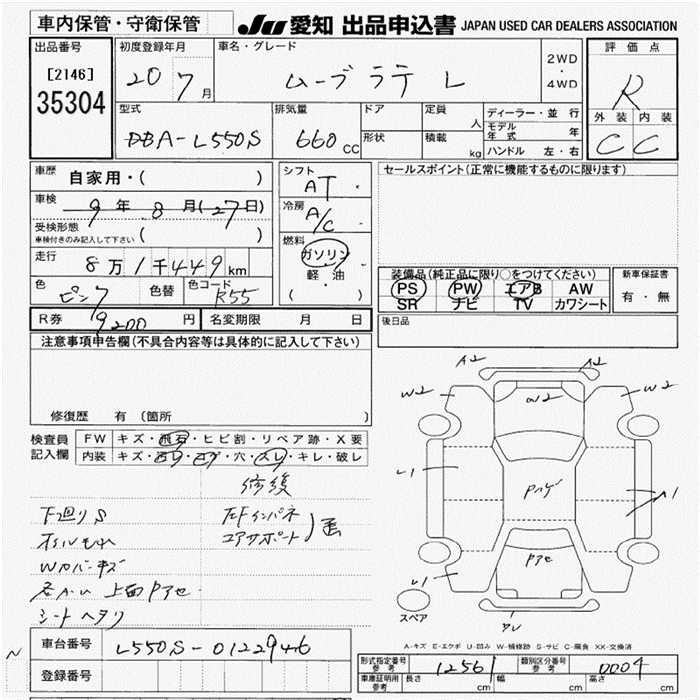 車内保管・守衛保管
JU 愛知 出品申込書 JAPAN USED CAR DEALERS ASSOCIATION
出品番号
[2146]
35304
初度登録年月
20 7月
車名・グレード
ムーブ ラテ L
2WD
・
4WD
評価点
R
外装 内装
C C
型式
DBA-L550S
排気量
660 cc
ドア
形状
定員 人
積載 kg
ディーラー・並行
モデル年式 年
ハンドル 左・右
車歴
自家用・( )
車検
9年 8月(27日)
受検形態
車検付きのみ記入して下さい ( )
走行
8万1千449km
色
ピンク
色替
色コード
R55
シフト
AT
冷房
A/C
燃料
ガソリン
軽・油
( )
セールスポイント(正常に機能するものに限ります)
装備品(純正品に限り○をつけてください)
PS PW エアB AW
SR ナビ TV カワシート
新車保証書
有・無
R券 9200 円
名変期限 月 日
後日品
注意事項申告欄(不具合内容等は具体的に記入して下さい)
修復歴 有(箇所 )
検査員記入欄
FW キズ・飛石・ヒビ割・リペア跡・X要
内装 キズ・汚れ・コゲ・穴・スレ・キレ・破レ
修復
下廻りS
オイルモレ
Wカバーキズ
上面Pアセ
シートヘタリ
左Fインパネ
コアサポート
A2 A2
W2 W2
U2
U1
Pハゲ
A1
Pアセ
U1
スペア
A-キズ E-エクボ U-凹み W-補修跡 S-サビ C-腐食 XX-交換済
車台番号
L550S-0122946
登録番号
形式指定番号
参考
12561
類別区分番号
参考
0004
車庫証明用
参考
長さ cm
幅 cm
高さ cm